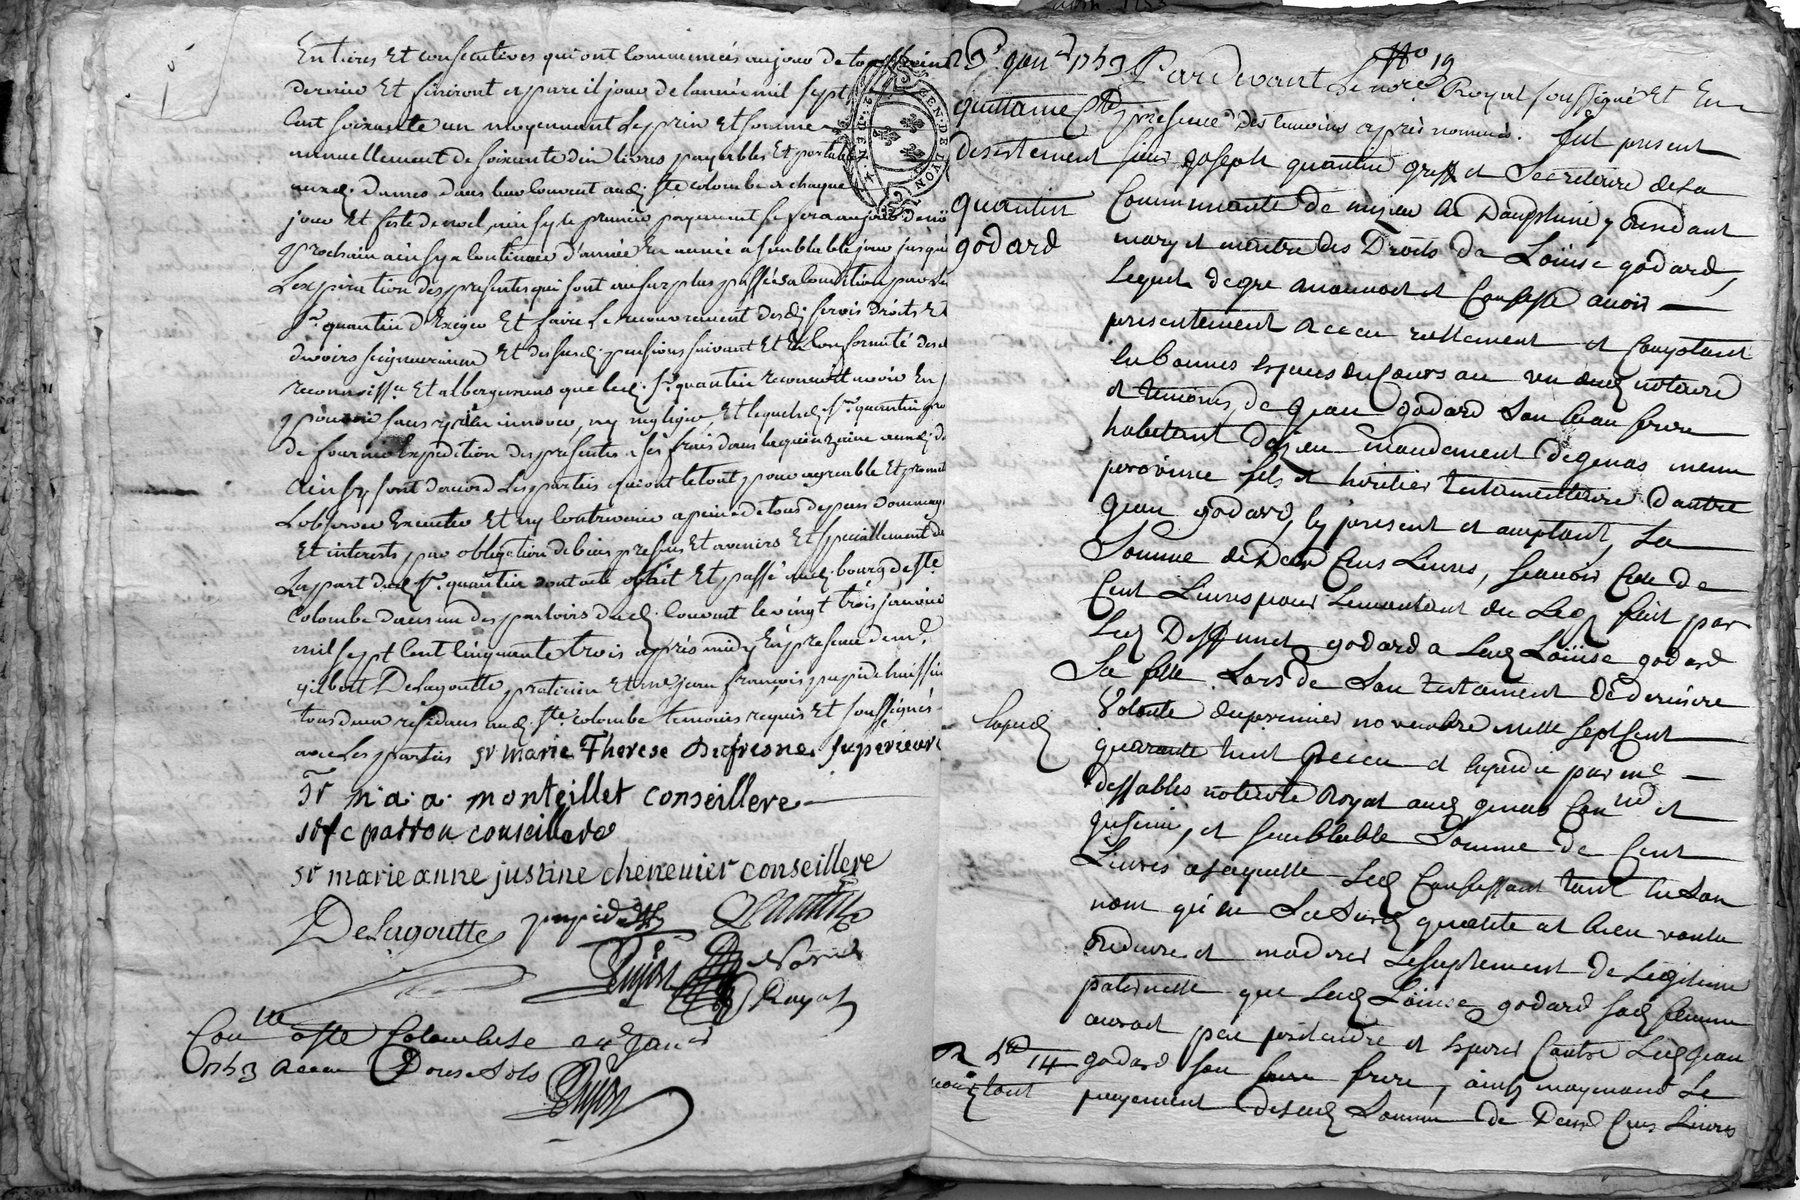 Entieres Et consecutives qui ont commencés au jour de
dernier Et finiront a pareil jour de lannée mil sept
Cent soixante un moyennant Le prix Et somme
annuellement de soixante dix livres payables Et portable
auxd. dames dans leur Couvent aud. Ste Colombe a chaque
jour Et feste de noel
prochain ainsy a Continuer d'année En année a semblable jour jusqua
Lexpiration des presentes qui sont au surplus passées a Condition par Le
Sr. quantin d'Exiger Et faire Le recouvrement desd. servis Droits Et
devoirs seigneuriaux Et des susd. pensions suivant Et En Conformité des
reconnoissces Et albergemens que led. Sr. quantin reconnoit avoir En
pouvoir sans y rien innover, ny negliger, Et lequel d. Sr. quantin
de fournir Expedition des presentes a ses frais dans la quinzaine
ainsy sont d'accord Les parties qui ont le tout pour agreable Et promis
L'observer Executer Et ny Contrevenir a peine de tous depens dommag
Et interests par obligation de biens presens Et avenirs Et specialement de
La part dud. Sr. quantin dont acte fait Et passé aud. bourg de Ste
Colombe dans un des parloirs dud. Couvent le vingt trois janvier
mil sept Cent Cinquante trois après midy En presence de me.
gilbert Delagoutte praticien Et me jean françois papide huissier
tous deux residans aud. Ste Colombe temoins requis Et soussignés
avec Les parties sr marie Therese Dufresne superieure
Sr m. a. a. monteillet conseillere
sr f c patton conseillere
sr marie anne justine chenevier conseillere
Delagoutte papide quantin
Dujon
Royal
Conlle a Ste Colombe le 24 Janr
1753 Receu Douze sols
Dujon
No 19
23e janr 1753
quittance
desistement
quantin
godard
Pardevant Le nore Royal soussigné Et En
presence des temoins après nommés. fut present
sieur joseph quantin greff. et Secretaire de la
Communauté de mizieu En Dauphiné y
mary et maitre des Droits de Loüise godard,
Lequel de gré a reconnu et Confesse avoir
presentement Receu reellement et Comptant
En bonnes especes du Cours au vu dud. notaire
et temoins, de jean godard son beau frere
habitant mandement de genas meme
province fils et heritier testamentaire d'autre
jean godard, cy present et acceptant, La
Somme de Deux Cens Livres, sçavoir Celle de
Cent Livres pour Lemontant du Leg fait par
Led Deffunct godard a Lad Loüise godard
Sa fille Lors de Son testament de derniere
Volonté du premier novembre mille sept Cent
quarante huit Receu et expedié par me
dessables notaire Royal aud genas Conllé et
insinué, et semblable Somme de Cent
Livres a Laquelle Led Confessant tant En son
nom qu'en Sa Susd qualité at bien voulu
reduire et moderer Le suplement de Legitime
paternelle que Lad Loüise godard sad femme
auroit peu pretendre et esperer Contre Led jean
godard son frere, ainsy moyenant Le
payement desd Somme de Deux Cens Livres